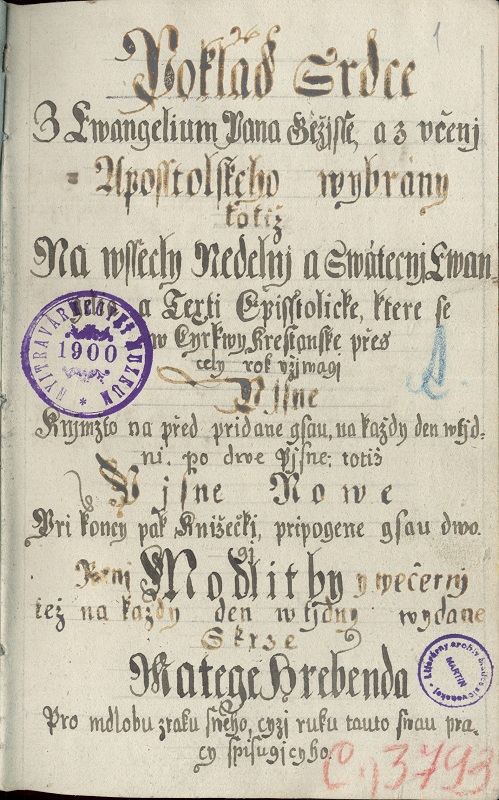 1
Poklad Srdce
Z Ewangelium Pana Gěžisse, a z včenj
Aposstolskeho wybrány
totiž
Na wssecky Nedelnj a Swátecnj Ewan-
a Texti Episstolicke, ktere se
w Cyrkwy Krestanske přes
cely rok vžjwagj
Pjsne
Knjmžto na před pridane gsau, na každy den w tjd-
ni, po dwe Pjsne; totiž
Pjsne Nowe
Pri koncy pak Knižečki, pripogene gsau dwo-
gj
Rannj Modlitby y wečernj
též na každy den w tjdny wydane
Skrze
Matege Hrebenda
Pro mdlobu zraku sweho, cyzj ruku tauto swau pra-
cy spisugjcyho.
1900
NYITRAVÁRMEGYEI MUZEUM
Literárny archív Matice slovenskej
MARTIN
C, 3793